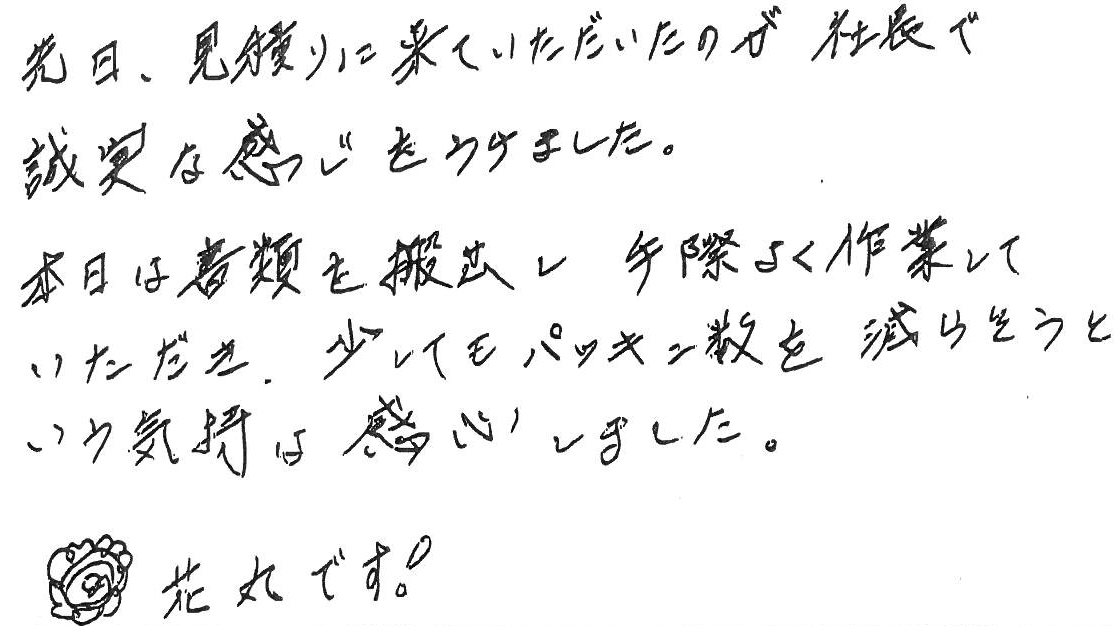 先日、見積りに来ていただいたのが社長で
誠実な感じをうけました。
本日は書類を搬出し手際よく作業して
いただき、少してもパッキン数を減らそうと
いう気持は感心しました。
花丸です!